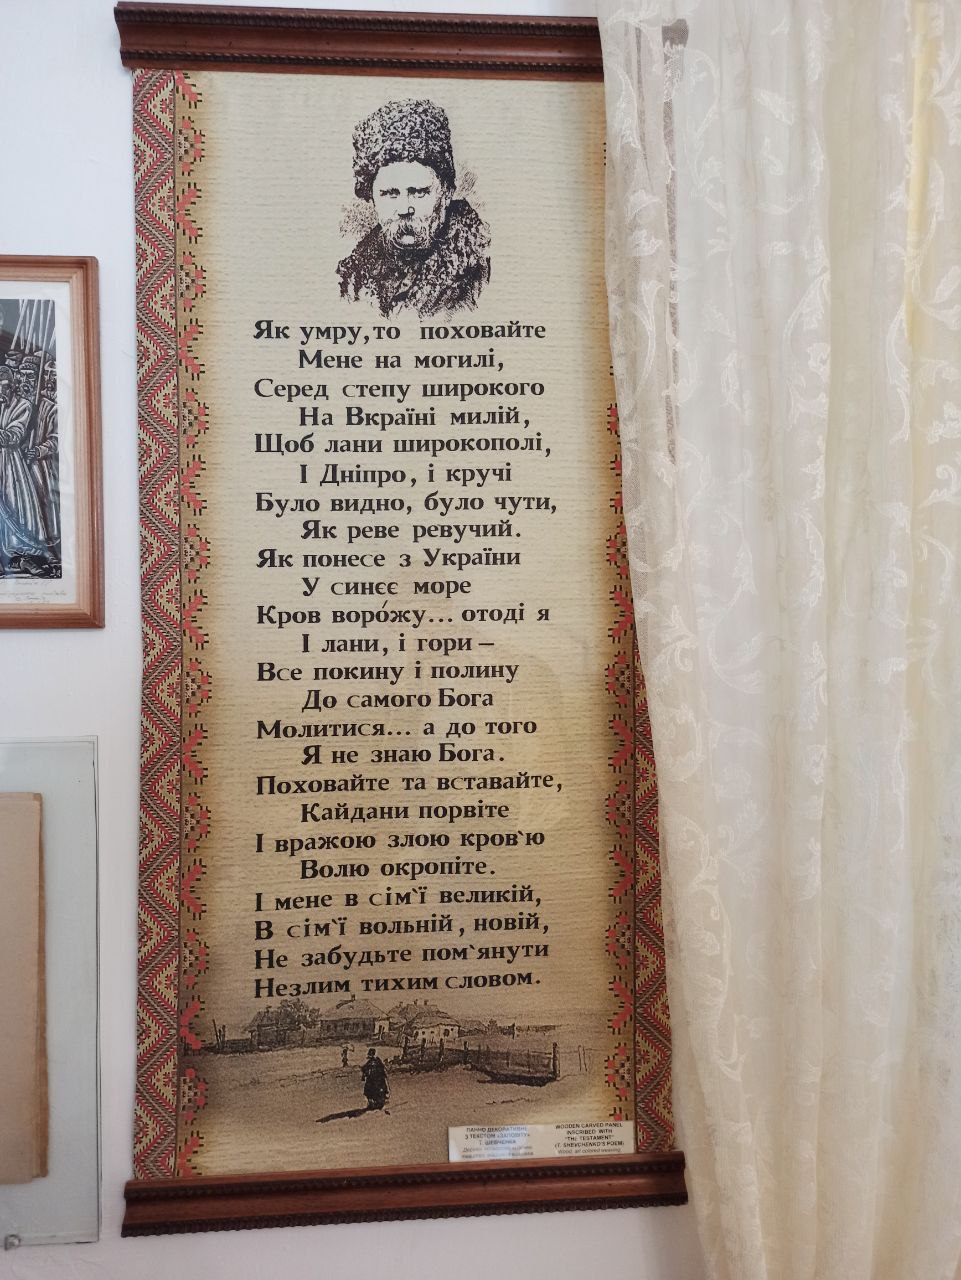 Як умру, то поховайте
Мене на могилі,
Серед степу широкого
На Вкраїні милій,
Щоб лани широкополі,
І Дніпро, і кручі
Було видно, було чути,
Як реве ревучий.
Як понесе з України
У синєє море
Кров воро́жу... отоді я
І лани, і гори –
Все покину і полину
До самого Бога
Молитися... а до того
Я не знаю Бога.
Поховайте та вставайте,
Кайдани порвіте
І вражою злою кров`ю
Волю окропіте.
І мене в сім`ї великій,
В сім`ї вольній, новій,
Не забудьте пом`янути
Незлим тихим словом.
ПАННО ДЕКОРАТИВНЕ
З ТЕКСТОМ «ЗАПОВІТУ»
Т. ШЕВЧЕНКА
WOODEN CARVED PANEL
INSCRIBED WITH
"THE TESTAMENT"
(T. SHEVCHENKO'S POEM)